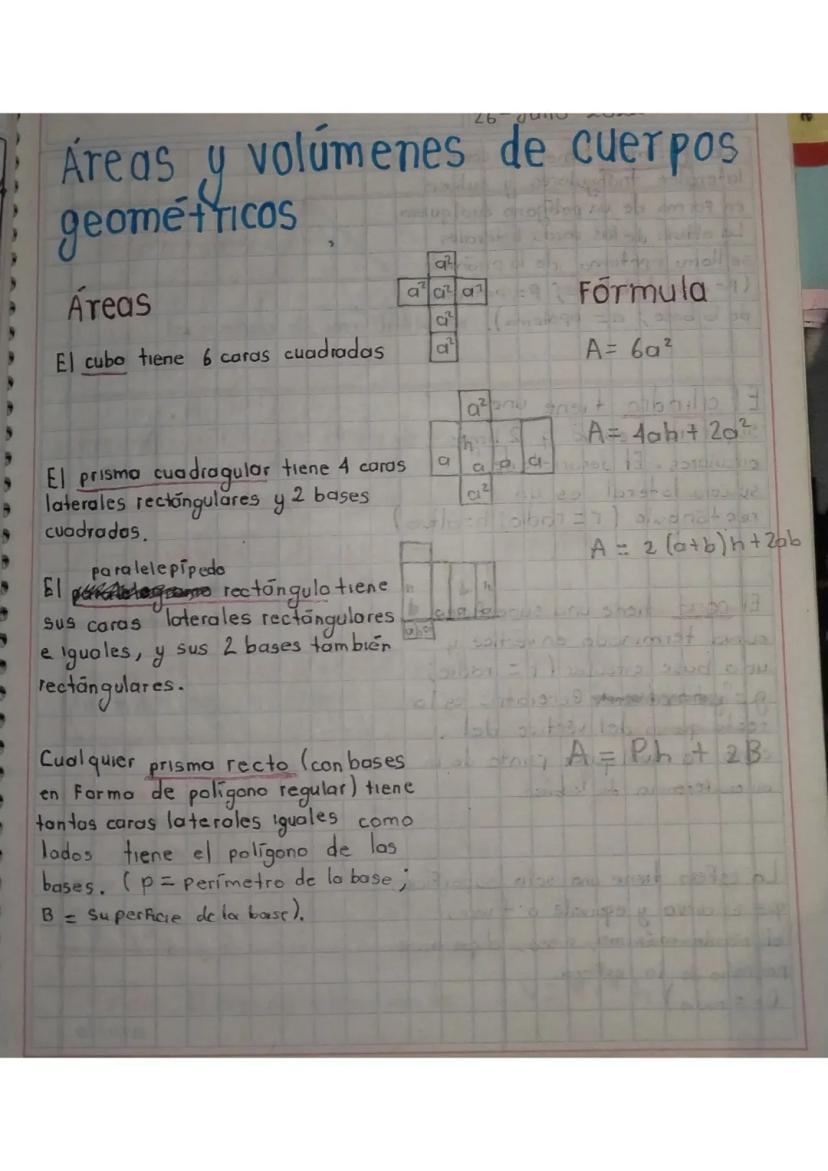 26- Julio
Áreas y volúmenes de cuerpos
geométricos
a²
a² a² a²
Áreas
Fórmula
a²
El cubo tiene 6 caras cuadradas
a²
A= 6a²
a²
A= 4ah + 2a²
h
a a a a
El prisma cuadragular tiene 4 caras
laterales rectángulares y 2 bases
a²
cuadradas.
A = 2 (a+b)h + 2ab
paralelepípedo
El rectángulo tiene
sus caras laterales rectángulares
e iguales, y sus 2 bases también
rectángulares.
Cualquier prisma recto (con bases
A = P.h + 2B
en Forma de polígono regular) tiene
tantas caras laterales iguales como
lados tiene el polígono de las
bases. (p = perímetro de la base;
B = superficie de la base).